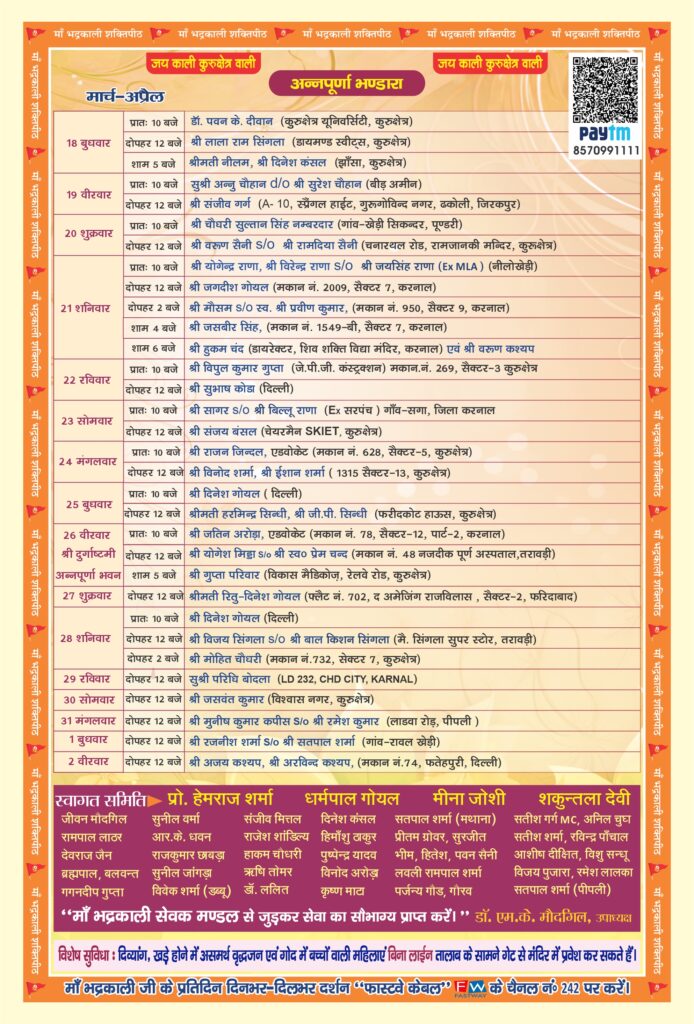 माँ भद्रकाली शक्तिपीठ माँ भद्रकाली शक्तिपीठ माँ भद्रकाली शक्तिपीठ माँ भद्रकाली शक्तिपीठ माँ भद्रकाली शक्तिपीठ
जय काली कुरुक्षेत्र वाली जय काली कुरुक्षेत्र वाली
अन्नपूर्णा भण्डारा
मार्च-अप्रैल
paytm
8570991111
18 बुधवार प्रातः 10 बजे डॉ. पवन के. दीवान (कुरुक्षेत्र यूनिवर्सिटी, कुरुक्षेत्र)
दोपहर 12 बजे श्री लाला राम सिंगला (डायमण्ड स्वीट्स, कुरुक्षेत्र)
शाम 5 बजे श्रीमती नीलम, श्री दिनेश कंसल (झाँसा, कुरुक्षेत्र)
19 वीरवार प्रातः 10 बजे सुश्री अन्नु चौहान d/o श्री सुरेश चौहान (बीड़ अमीन)
दोपहर 12 बजे श्री संजीव गर्ग (A- 10, स्प्रैंगल हाईट, गुरूगोविन्द नगर, ढकोली, जिरकपुर)
20 शुक्रवार प्रातः 10 बजे श्री चौधरी सुल्तान सिंह नम्बरदार (गांव-खेड़ी सिकन्दर, पूण्डरी)
दोपहर 12 बजे श्री वरूण सैनी S/o श्री रामदिया सैनी (चनारथल रोड, रामजानकी मन्दिर, कुरूक्षेत्र)
21 शनिवार प्रातः 10 बजे श्री योगेन्द्र राणा, श्री विरेन्द्र राणा S/o श्री जयसिंह राणा (Ex MLA ) (नीलोखेड़ी)
दोपहर 12 बजे श्री जगदीश गोयल (मकान नं. 2009, सैक्टर 7, करनाल)
दोपहर 2 बजे श्री मौसम S/o स्व. श्री प्रवीण कुमार, (मकान नं. 950, सैक्टर 9, करनाल)
शाम 4 बजे श्री जसबीर सिंह, (मकान नं. 1549-बी, सैक्टर 7, करनाल)
शाम 6 बजे श्री हुकम चंद (डायरेक्टर, शिव शक्ति विद्या मंदिर, करनाल) एवं श्री वरूण कश्यप
22 रविवार प्रातः 10 बजे श्री विपुल कुमार गुप्ता (जे.पी.जी. कंस्ट्रक्शन) मकान.नं. 269, सैक्टर-3 कुरुक्षेत्र
दोपहर 12 बजे श्री सुभाष कोडा (दिल्ली)
23 सोमवार प्रातः 10 बजे श्री सागर S/o श्री बिल्लू राणा (Ex सरपंच ) गाँव-सगा, जिला करनाल
दोपहर 12 बजे श्री संजय बंसल (चेयरमैन SKIET, कुरुक्षेत्र)
24 मंगलवार प्रातः 10 बजे श्री राजन जिन्दल, एडवोकेट (मकान नं. 628, सैक्टर-5, कुरुक्षेत्र)
दोपहर 12 बजे श्री विनोद शर्मा, श्री ईशान शर्मा ( 1315 सैक्टर-13, कुरुक्षेत्र)
25 बुधवार प्रातः 10 बजे श्री दिनेश गोयल ( दिल्ली)
दोपहर 12 बजे श्रीमती हरमिन्द्र सिन्धी, श्री जी.पी. सिन्धी (फरीदकोट हाऊस, कुरुक्षेत्र)
26 वीरवार प्रातः 10 बजे श्री जतिन अरोड़ा, एडवोकेट (मकान नं. 78, सैक्टर-12, पार्ट-2, करनाल)
श्री दुर्गाष्टमी दोपहर 12 बजे श्री योगेश मिड्ढा S/o श्री स्व० प्रेम चन्द (मकान नं. 48 नजदीक पूर्ण अस्पताल,तरावड़ी)
अन्नपूर्णा भवन शाम 5 बजे श्री गुप्ता परिवार (विकास मैडिकोज़, रेलवे रोड, कुरुक्षेत्र)
27 शुक्रवार दोपहर 12 बजे श्रीमती रितु-दिनेश गोयल (फ्लैट नं. 702, द अमेजिंग राजविलास , सैक्टर-2, फरिदाबाद)
28 शनिवार प्रातः 10 बजे श्री दिनेश गोयल (दिल्ली)
दोपहर 12 बजे श्री विजय सिंगला S/o श्री बाल किशन सिंगला (मै. सिंगला सुपर स्टोर, तरावड़ी)
दोपहर 2 बजे श्री मोहित चौधरी (मकान नं.732, सेक्टर 7, कुरुक्षेत्र)
29 रविवार दोपहर 12 बजे सुश्री परिधि बोदला (LD 232, CHD CITY, KARNAL)
30 सोमवार दोपहर 12 बजे श्री जसवंत कुमार (विश्वास नगर, कुरुक्षेत्र)
31 मंगलवार दोपहर 12 बजे श्री मुनीष कुमार कपीस S/o श्री रमेश कुमार (लाडवा रोड़, पीपली )
1 बुधवार दोपहर 12 बजे श्री रजनीश शर्मा S/o श्री सतपाल शर्मा (गांव-रावल खेड़ी)
2 वीरवार दोपहर 12 बजे श्री अजय कश्यप, श्री अरविन्द कश्यप, (मकान नं.74, फतेहपुरी, दिल्ली)
स्वागत समिति प्रो. हेमराज शर्मा धर्मपाल गोयल मीना जोशी शकुन्तला देवी
जीवन मौदगिल सुनील वर्मा संजीव मित्तल दिनेश कंसल सतपाल शर्मा (मथाना) सतीश गर्ग MC, अनिल चुघ
रामपाल लाठर आर.के. धवन राजेश शांडिल्य हिमाँशु ठाकुर प्रीतम ग्रोवर, सुरजीत सतीश शर्मा, रविन्द्र पाँचाल
देवराज जैन राजकुमार छाबड़ा हाकम चौधरी पुष्पेन्द्र यादव भीम, हितेश, पवन सैनी आशीष दीक्षित, विशु सन्धू
ब्रह्मपाल, बलवन्त सुनील जांगड़ा ऋषि तोमर विनोद अरोड़ा लवली रामपाल शर्मा विजय पुजारा, रमेश लालका
गगनदीप गुप्ता विवेक शर्मा (डब्बू) डॉ. ललित कृष्ण माटा पर्जन्य गौड, गौरव सतपाल शर्मा (पीपली)
“माँ भद्रकाली सेवक मण्डल से जुड़कर सेवा का सौभाग्य प्राप्त करें। ” डॉ. एम.के. मौदगिल, उपाध्यक्ष
विशेष सुविधा : दिव्यांग, खड़े होने में असमर्थ वृद्धजन एवं गोद में बच्चों वाली महिलाएं बिना लाईन तालाब के सामने गेट से मंदिर में प्रवेश कर सकते हैं।
माँ भद्रकाली जी के प्रतिदिन दिनभर-दिलभर दर्शन “फास्टवे केबल” FW FASTWAY के चैनल नं० 242 पर करें।